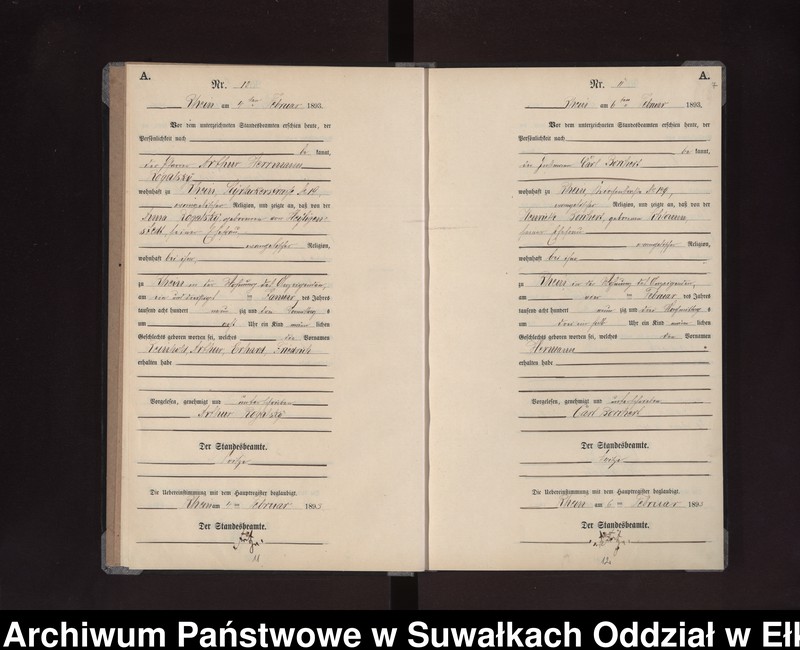 A.
Nr. 10
Rhein am 4 ten Februar 1893.
Vor dem unterzeichneten Standesbeamten erschien heute, der
Persönlichkeit nach
be kannt,
der Arthur Herrmann
Rogalski
wohnhaft zu Rhein,
evangelischer Religion, und zeigte an, daß von der
Rogalski geborenen
seiner Ehefrau
evangelischer Religion,
wohnhaft bei ihm,
zu Rhein in der Wohnung des Anzeigenden,
am ein und dreißigsten Januar, des Jahres
tausend acht hundert neun zig und drei Vormittag s
um Uhr ein Kind männ lichen
Geschlechts geboren worden sei, welches die Vornamen
Arthur, Erhard, Friedrich
erhalten habe
Vorgelesen, genehmigt und unterschrieben
Arthur Rogalski
Der Standesbeamte.
Die Uebereinstimmung mit dem Hauptregister beglaubigt.
Rhein am 4 ten Februar 1893
Der Standesbeamte.
A.
Nr. 11
Rhein am 6 ten Februar 1893.
Vor dem unterzeichneten Standesbeamten erschien heute, der
Persönlichkeit nach
be kannt,
der Carl Borchert
wohnhaft zu Rhein,
evangelischer Religion, und zeigte an, daß von der
Borchert, geborenen
seiner Ehefrau
evangelischer Religion,
wohnhaft bei ihm
zu Rhein in der Wohnung des Anzeigenden,
am Februar, des Jahres
tausend acht hundert neun zig und drei Nachmittag s
um Uhr ein Kind männ lichen
Geschlechts geboren worden sei, welches den Vornamen
Hermann
erhalten habe
Vorgelesen, genehmigt und unterschrieben
Carl Borchert
Der Standesbeamte.
Die Uebereinstimmung mit dem Hauptregister beglaubigt.
Rhein am 6 ten Februar 1893
Der Standesbeamte.
Archiwum Państwowe w Suwałkach Oddział w Eł